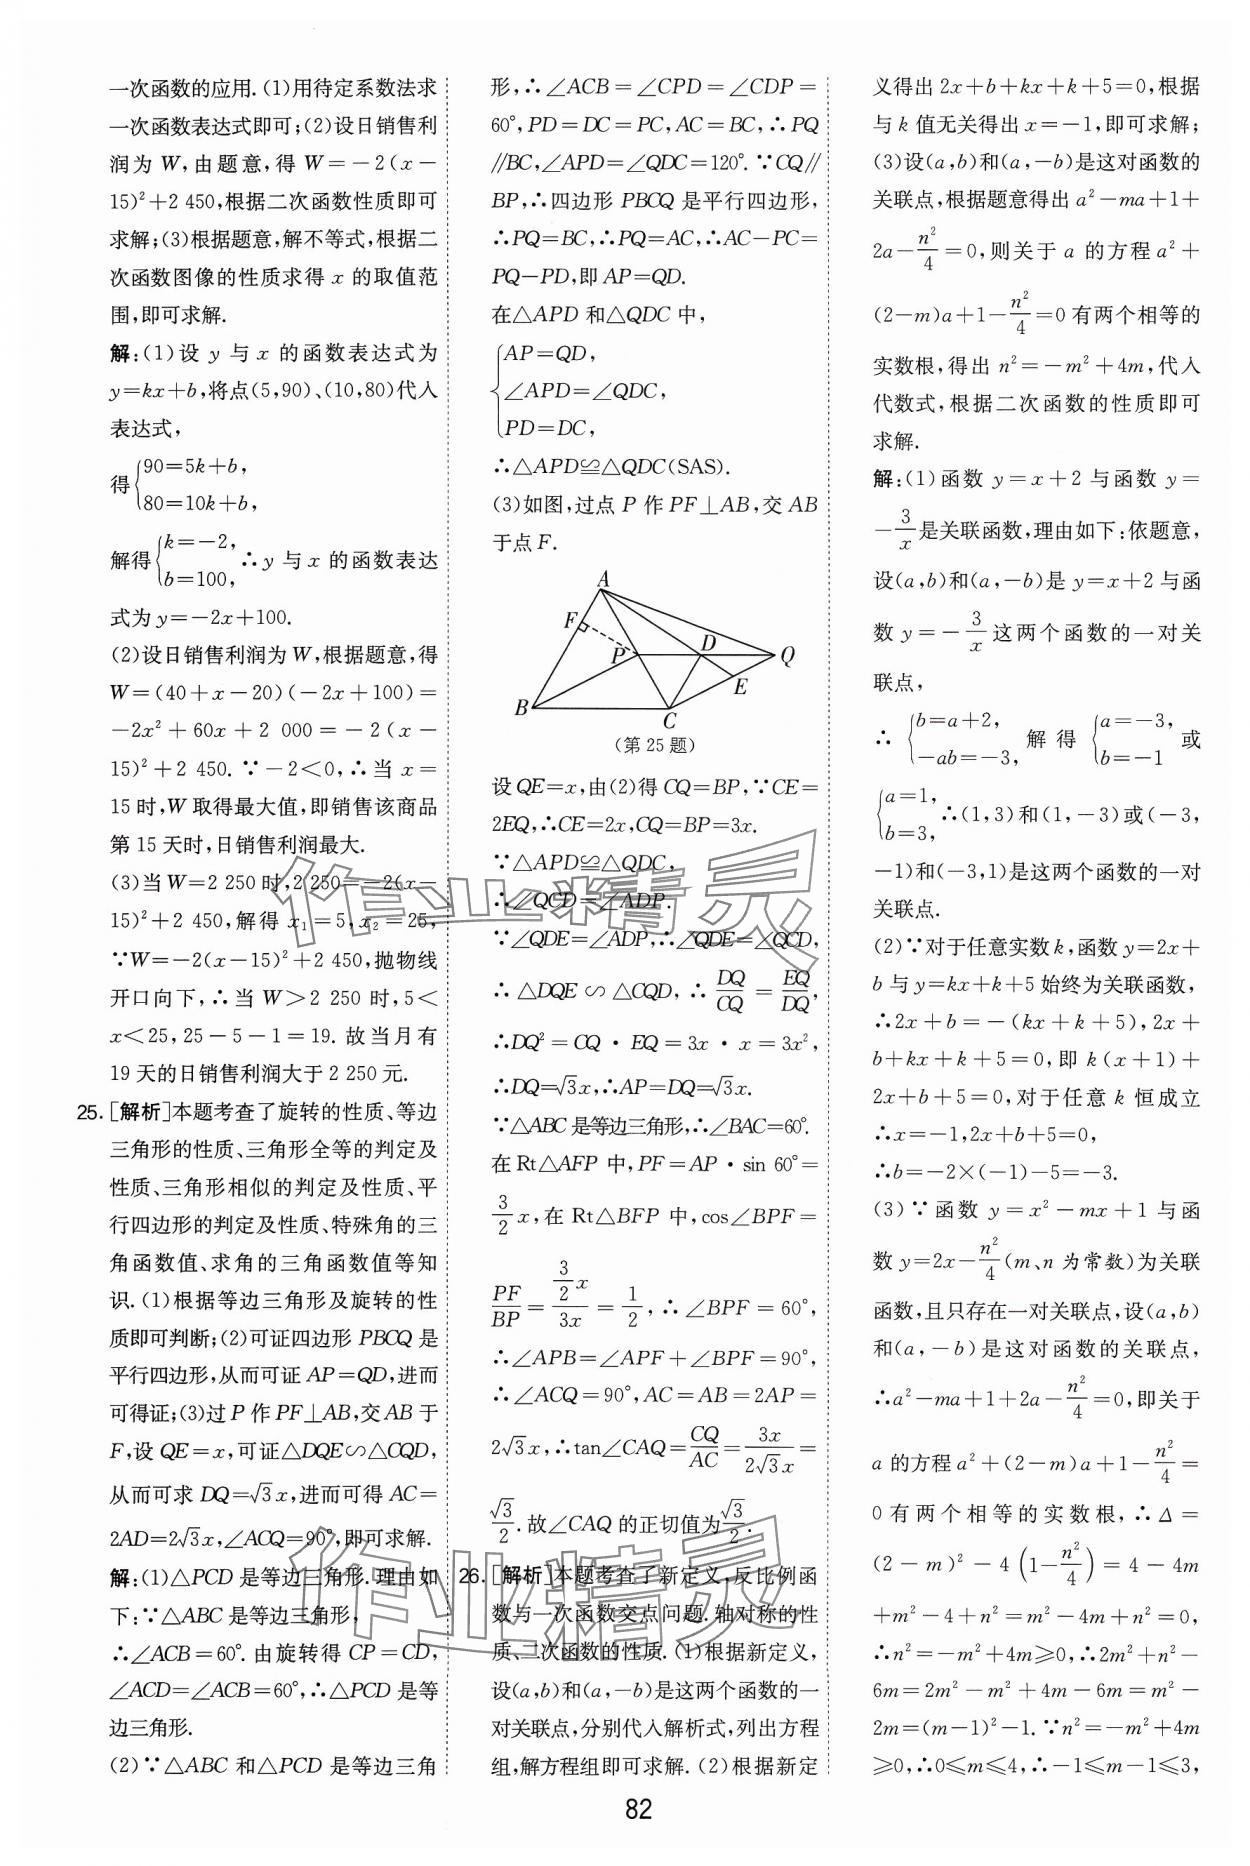 一次函数的应用. (1)用待定系数法求
一次函数表达式即可;(2)设日销售利
润为 W,由题意,得 W=-2(x-
15)²+2 450,根据二次函数性质即可
求解;(3)根据题意,解不等式,根据二
次函数图像的性质求得 x 的取值范
围,即可求解.
解:(1)设 y 与 x 的函数表达式为
y=kx+b,将点(5,90)、(10,80)代入
表达式,
得{90=5k+b,
80=10k+b,
解得{k=-2,
b=100, ∴y 与 x 的函数表达
式为 y=-2x+100.
(2)设日销售利润为 W,根据题意,得
W=(40+x-20)(-2x+100)=
-2x²+60x+2 000=-2(x-
15)²+2 450. ∵-2<0,∴当 x=
15 时,W 取得最大值,即销售该商品
第 15 天时,日销售利润最大.
(3)当 W=2 250 时,2 250=-2(x-
15)²+2 450,解得 x₁=5,x₂=25,
∵W=-2(x-15)²+2 450,抛物线
开口向下,∴当 W>2 250 时,5<
x<25,25-5-1=19. 故当月有
19 天的日销售利润大于 2 250 元.
25. [解析]本题考查了旋转的性质、等边
三角形的性质、三角形全等的判定及
性质、三角形相似的判定及性质、平
行四边形的判定及性质、特殊角的三
角函数值、求角的三角函数值等知
识. (1)根据等边三角形及旋转的性
质即可判断;(2)可证四边形 PBCQ 是
平行四边形,从而可证 AP=QD,进而
可得证;(3)过 P 作 PF⊥AB,交 AB 于
F,设 QE=x,可证△DQE∽△CQD,
从而可求 DQ=√3x,进而可得 AC=
2AD=2√3x,∠ACQ=90°,即可求解.
解:(1)△PCD 是等边三角形. 理由如
下:∵△ABC 是等边三角形,
∴∠ACB=60°. 由旋转得 CP=CD,
∠ACD=∠ACB=60°,∴△PCD 是等
边三角形.
(2)∵△ABC 和△PCD 是等边三角
形,∴∠ACB=∠CPD=∠CDP=
60°,PD=DC=PC,AC=BC,∴PQ
∥BC,∠APD=∠QDC=120°. ∵CQ∥
BP,∴四边形 PBCQ 是平行四边形,
∴PQ=BC,∴PQ=AC,∴AC-PC=
PQ-PD,即 AP=QD.
在△APD 和△QDC 中,
{AP=QD,
∠APD=∠QDC,
PD=DC,
∴△APD≌△QDC(SAS).
(3)如图,过点 P 作 PF⊥AB,交 AB
于点 F.
A
F
P
D
Q
E
B
C
(第 25 题)
设 QE=x,由(2)得 CQ=BP,∵CE=
2EQ,∴CE=2x,CQ=BP=3x.
∵△APD≌△QDC,
∴∠QCD=∠ADP.
∵∠QDE=∠ADP,∴∠QDE=∠QCD,
∴△DQE∽△CQD,∴DQ/CQ=EQ/DQ,
∴DQ²=CQ·EQ=3x·x=3x²,
∴DQ=√3x,∴AP=DQ=√3x.
∵△ABC 是等边三角形,∴∠BAC=60°.
在 Rt△AFP 中,PF=AP·sin 60°=
3/2 x,在 Rt△BFP 中,cos∠BPF=
PF/BP=(3/2 x)/3x=1/2,∴∠BPF=60°,
∴∠APB=∠APF+∠BPF=90°,
∴∠ACQ=90°,AC=AB=2AP=
2√3x,∴tan∠CAQ=CQ/AC=3x/2√3x=
√3/2. 故∠CAQ 的正切值为√3/2.
26. [解析]本题考查了新定义,反比例函
数与一次函数交点问题. 轴对称的性
质、二次函数的性质. (1)根据新定义,
设(a,b)和(a,-b)是这两个函数的一
对关联点,分别代入解析式,列出方程
组,解方程组即可求解. (2)根据新定
义得出 2x+b+kx+k+5=0,根据
与 k 值无关得出 x=-1,即可求解;
(3)设(a,b)和(a,-b)是这对函数的
关联点,根据题意得出 a²-ma+1+
2a-n²/4=0,则关于 a 的方程 a²+
(2-m)a+1-n²/4=0 有两个相等的
实数根,得出 n²=-m²+4m,代入
代数式,根据二次函数的性质即可
求解.
解:(1)函数 y=x+2 与函数 y=
-3/x是关联函数,理由如下:依题意,
设(a,b)和(a,-b)是 y=x+2 与函
数 y=-3/x 这两个函数的一对关
联点,
∴{b=a+2,
-ab=-3, 解得{a=-3,
b=-1 或
{a=1,
b=3, ∴(1,3)和(1,-3)或(-3,
-1)和(-3,1)是这两个函数的一对
关联点.
(2)∵对于任意实数 k,函数 y=2x+
b 与 y=kx+k+5 始终为关联函数,
∴2x+b=-(kx+k+5),2x+
b+kx+k+5=0,即 k(x+1)+
2x+b+5=0,对于任意 k 恒成立
∴x=-1,2x+b+5=0,
∴b=-2×(-1)-5=-3.
(3)∵函数 y=x²-mx+1 与函
数 y=2x-n²/4(m、n 为常数)为关联
函数,且只存在一对关联点,设(a,b)
和(a,-b)是这对函数的关联点,
∴a²-ma+1+2a-n²/4=0,即关于
a 的方程 a²+(2-m)a+1-n²/4=
0 有两个相等的实数根,∴Δ=
(2-m)²-4(1-n²/4)=4-4m
+m²-4+n²=m²-4m+n²=0,
∴n²=-m²+4m≥0,∴2m²+n²-
6m=2m²-m²+4m-6m=m²-
2m=(m-1)²-1. ∵n²=-m²+4m
≥0,∴0≤m≤4,∴-1≤m-1≤3,
作业精灵
作业精灵
82